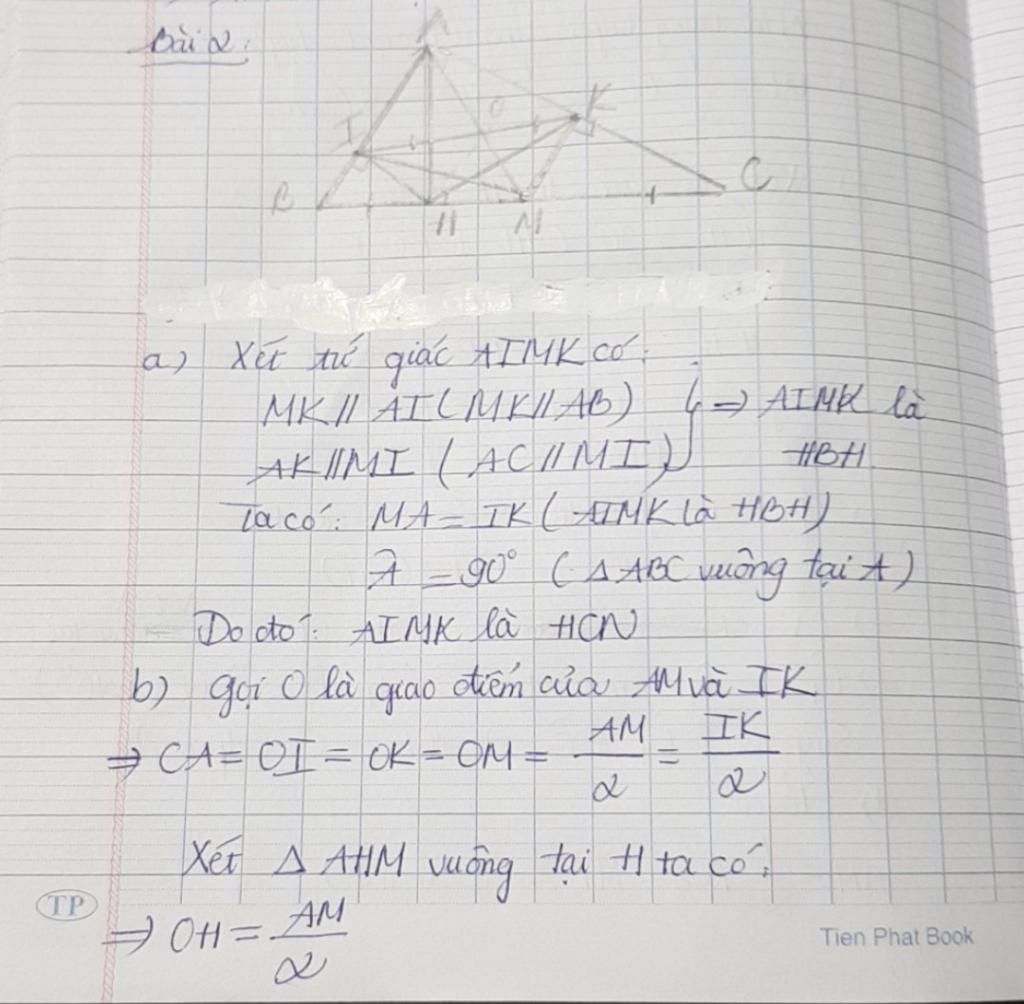 Bài 2:
A
O K
I
B H M C
a) Xét tứ giác AIMK có:
MK // AI (MK // AB) } => AIMK là
AK // MI (AC // MI) HBH
Ta có: MA = IK (AIMK là HBH)
Â = 90° (Δ ABC vuông tại A)
Do đó: AIMK là HCN
b) gọi O là giao điểm của AM và IK
=> CA = OI = OK = OM = AM/2 = IK/2
Xét Δ AHM vuông tại H ta có:
=> OH = AM/2
TP
Tien Phat Book